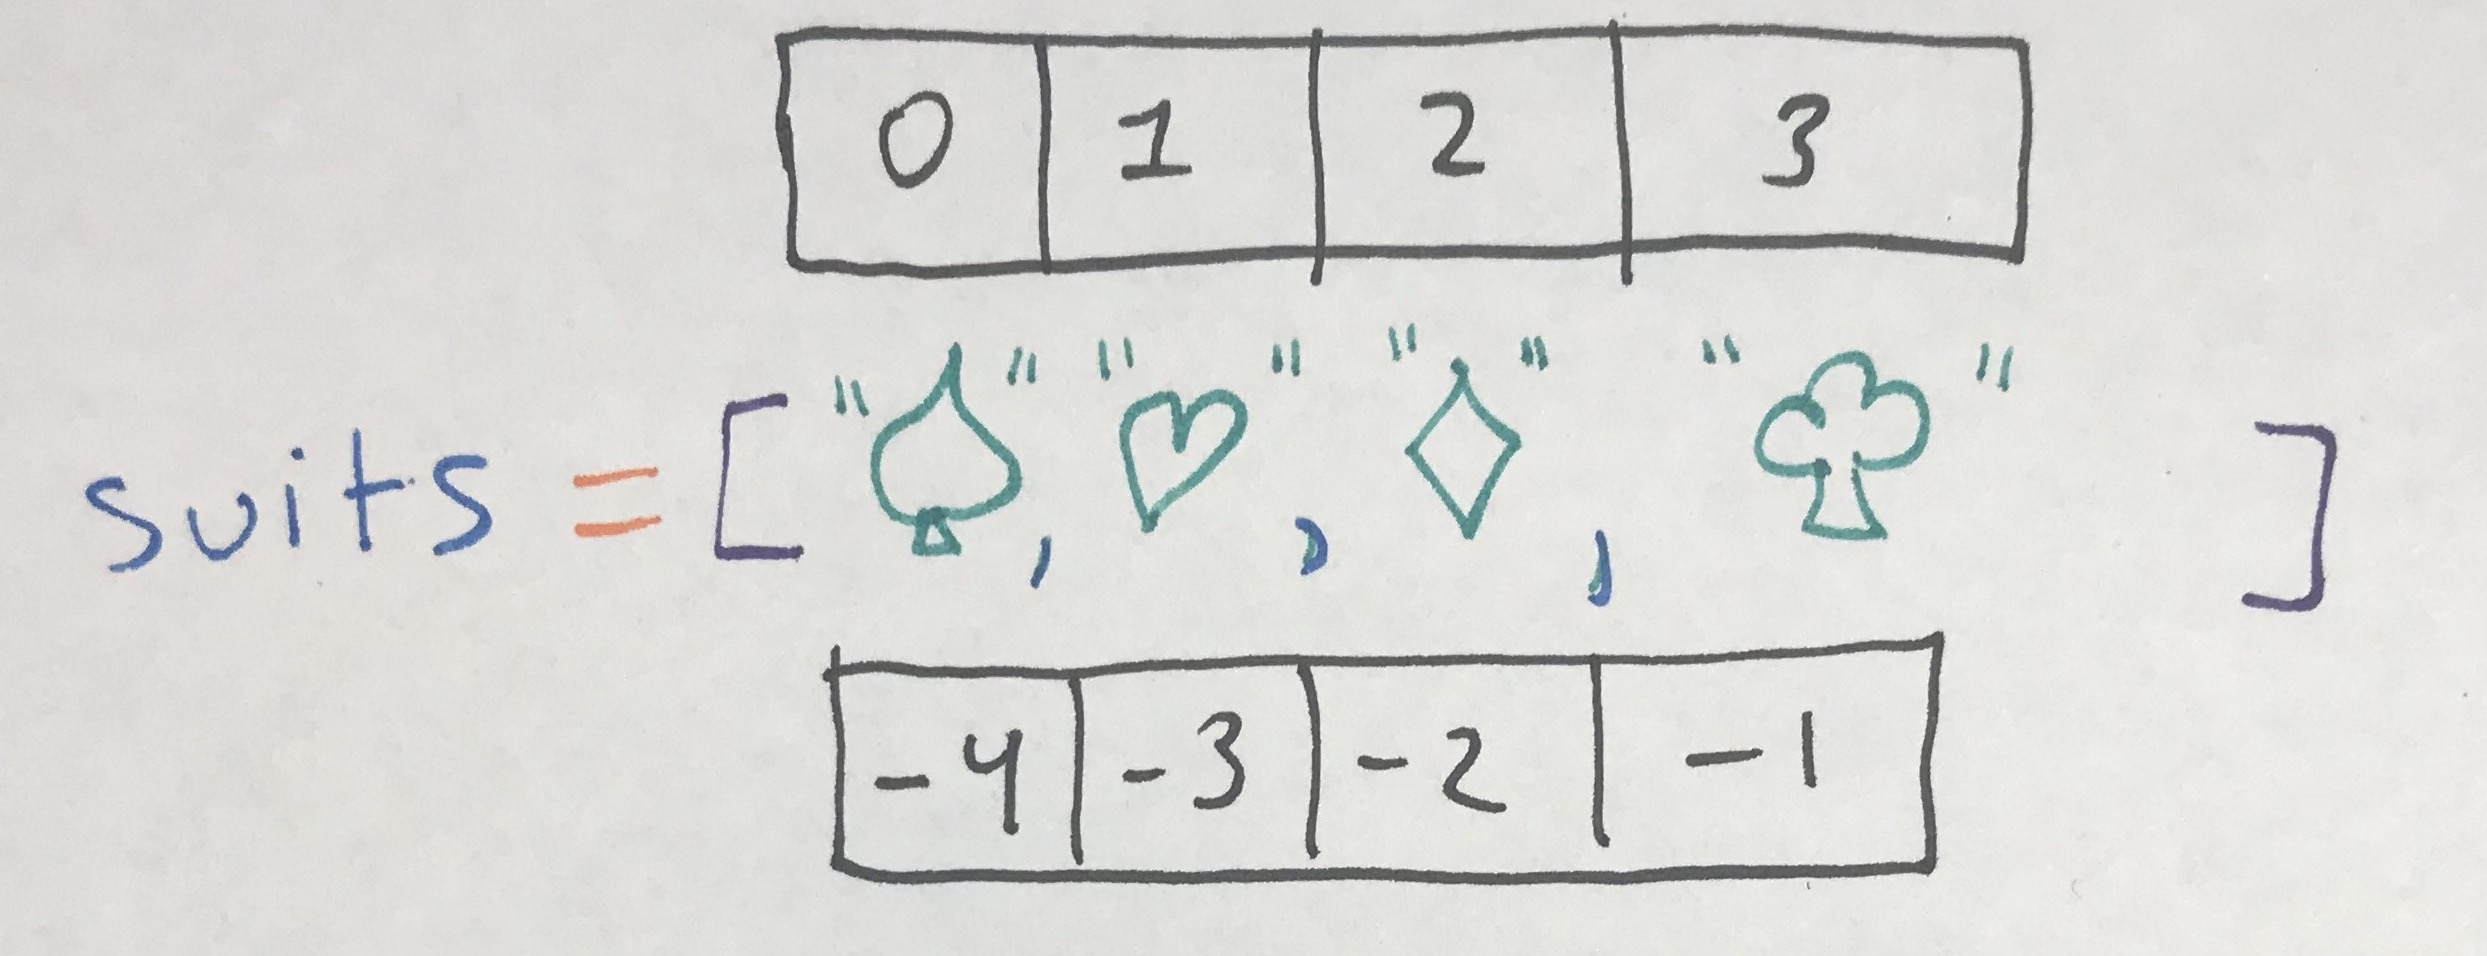 0 1 2 3
suits = ["♤", "♡", "♢", "♧"]
-4 -3 -2 -1